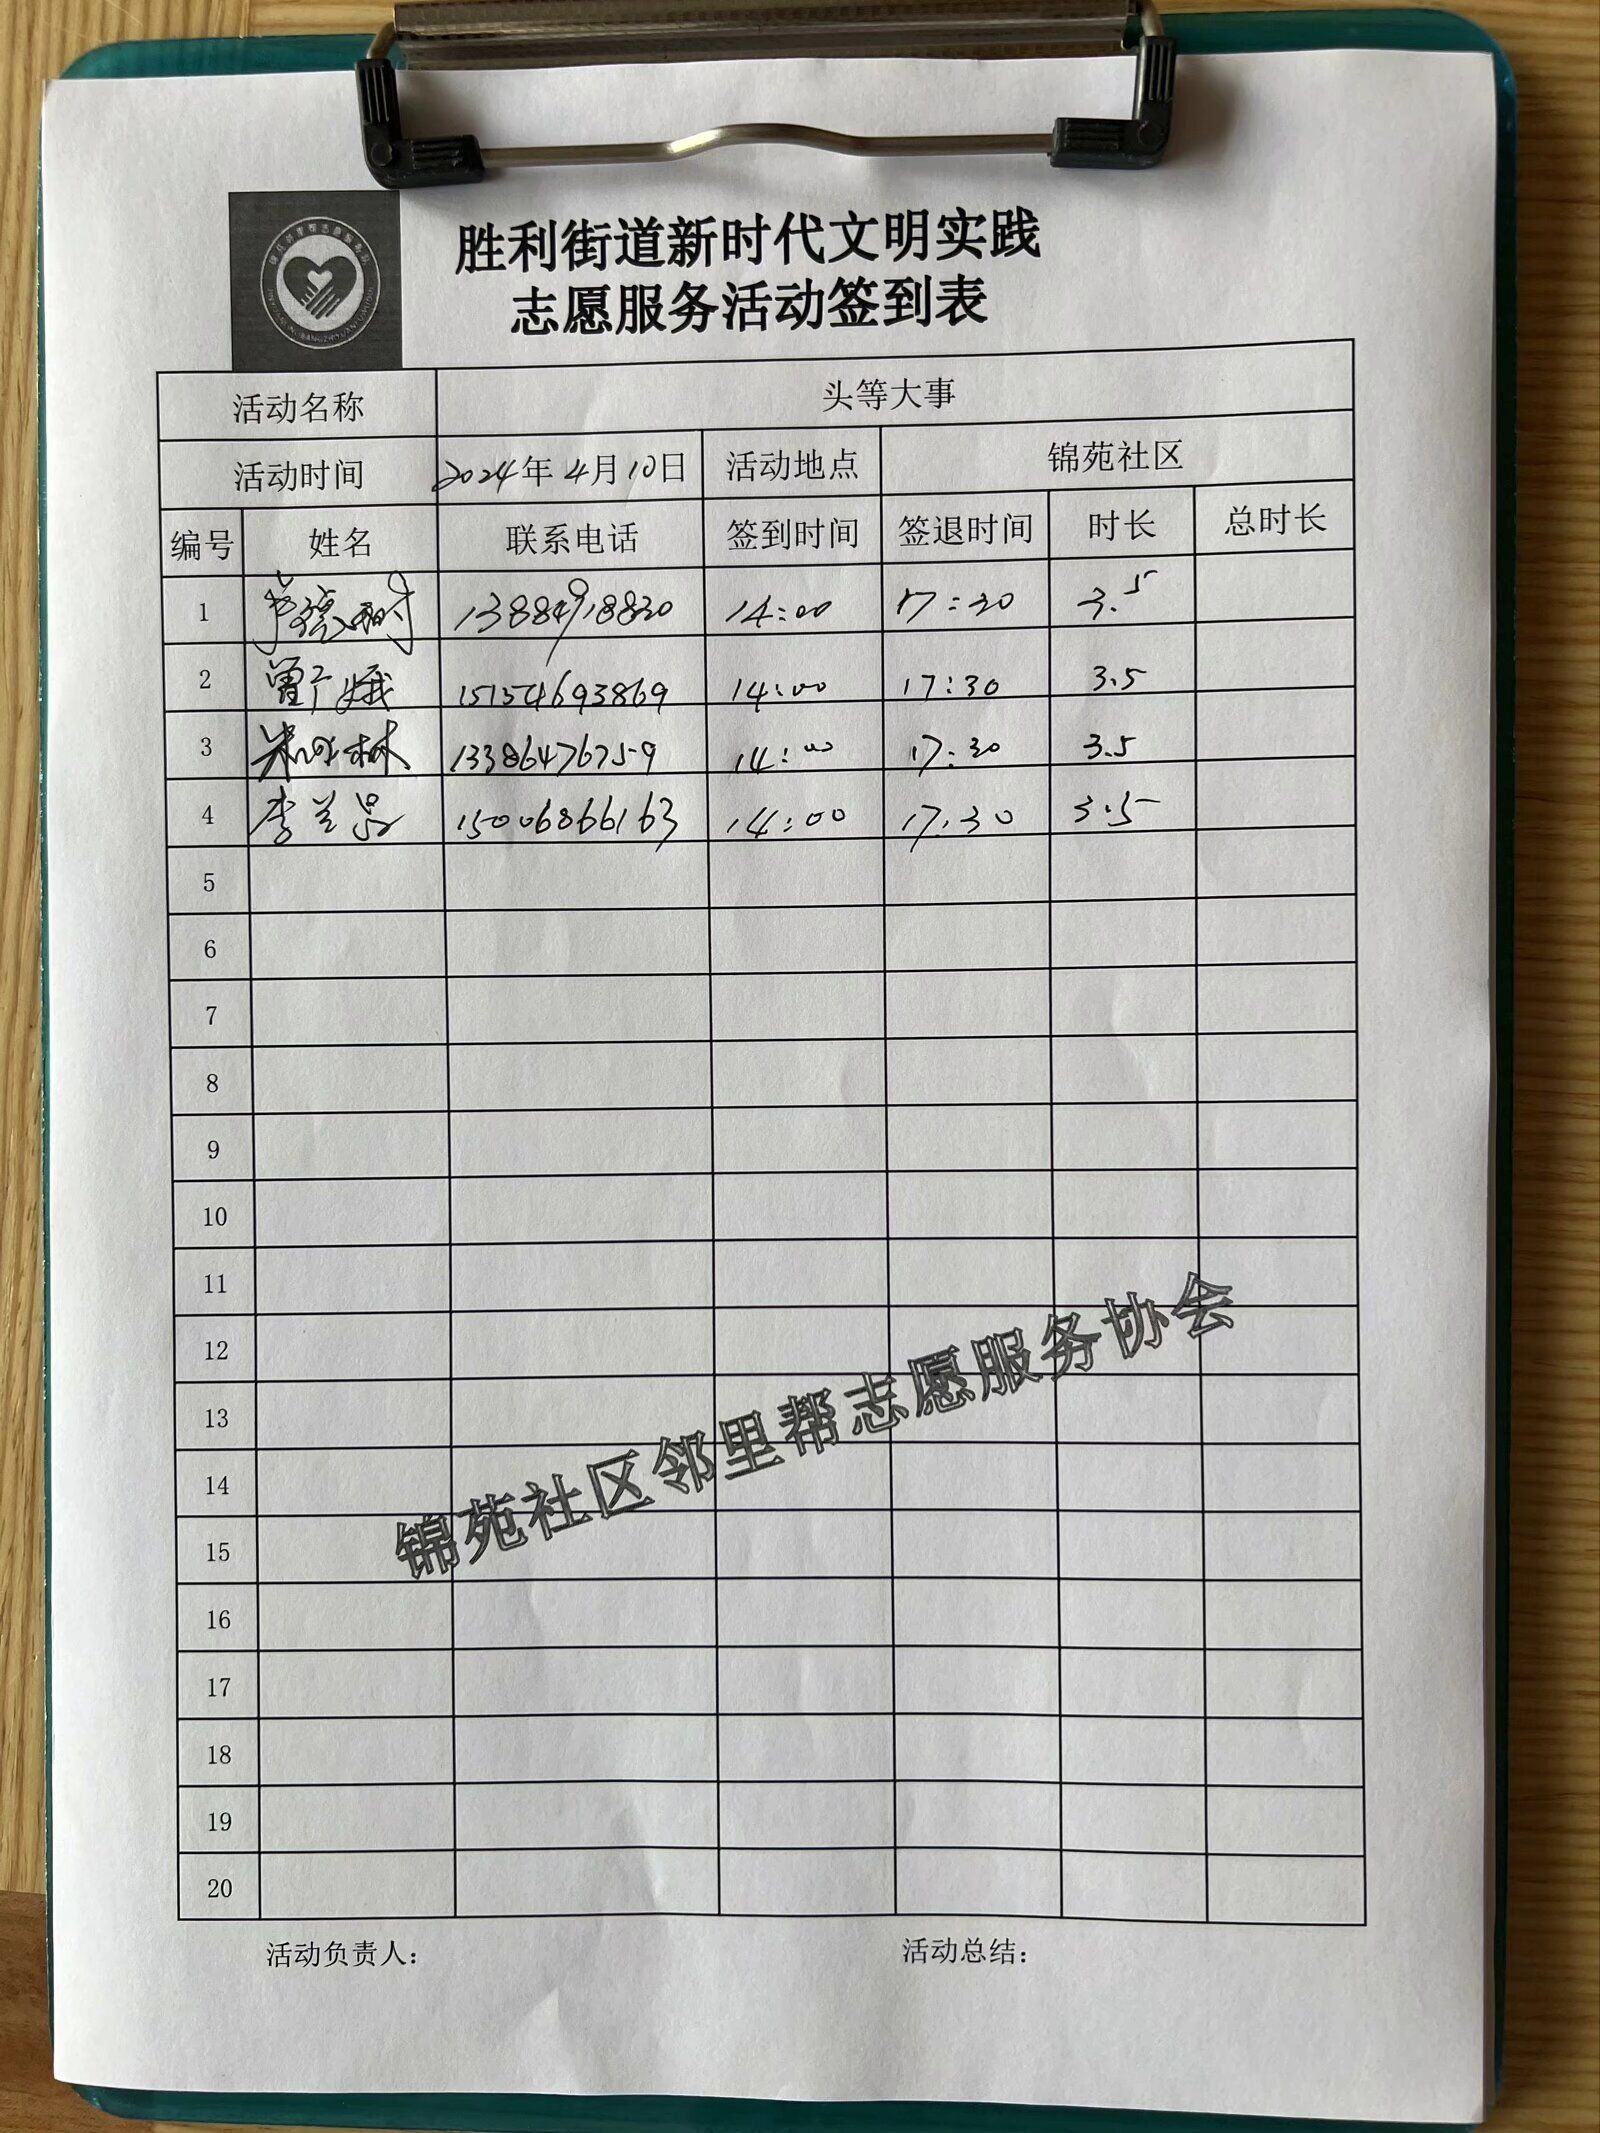 胜利街道新时代文明实践
志愿服务活动签到表
活动名称 头等大事
活动时间 2024年4月10日 活动地点 锦苑社区
编号 姓名 联系电话 签到时间 签退时间 时长 总时长
1 13884918830 14:00 17:30 3.5
2 曾广娥 15154693869 14:00 17:30 3.5
3 13386476759 14:00 17:30 3.5
4 李兰 15006866163 14:00 17:30 3.5
5
6
7
8
9
10
11
12
13
14
15
16
17
18
19
20
锦苑社区邻里帮志愿服务协会
活动负责人: 活动总结: